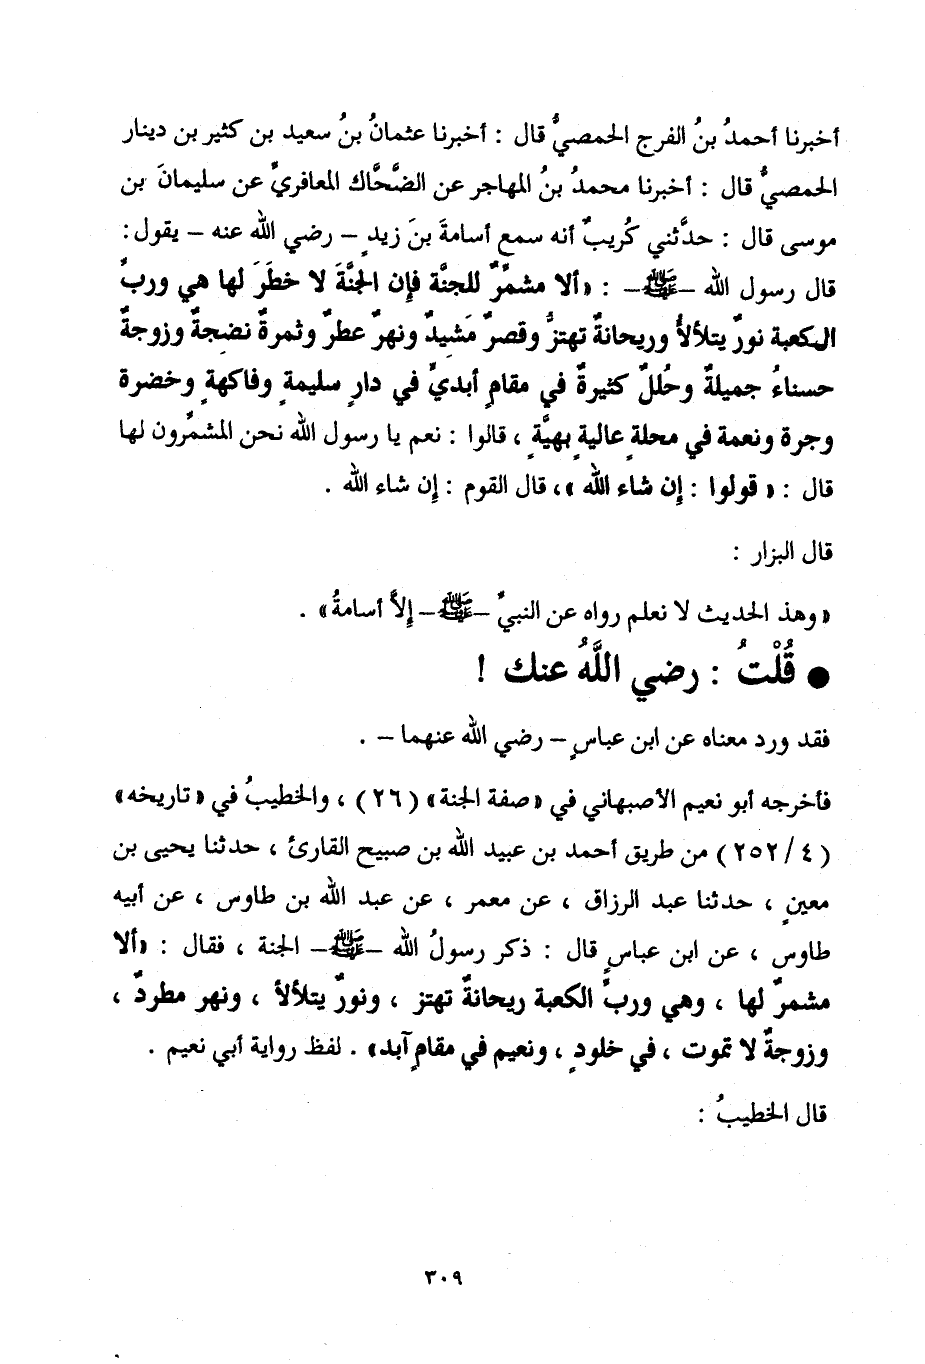 أخبرنا أحمدُ بنُ الفرج الحمصيُّ قال : أخبرنا عثمانُ بنُ سعيد بن كثير بن دينار
الحمصيُّ قال : أخبرنا محمدُ بنُ المهاجر عن الضَّحَّاك المعافريِّ عن سليمانَ بن
موسى قال : حدَّثني كُريبٌ أنه سمع أسامةَ بنَ زيدٍ – رضي الله عنه – يقول :
قال رسول الله –ﷺ– : «ألا مشمِّرٌ للجنَّة فإن الجنَّةَ لا خطَرَ لها هي وربِّ
الكعبة نورٌ يتلألأُ وريحانةٌ تهتزُّ وقصرٌ مَشيدٌ ونهرٌ عطرٌ وثمرةٌ نضِجةٌ وزوجةٌ
حسناءُ جميلةٌ وحُللٌ كثيرةٌ في مقامٍ أبديٍّ في دارٍ سليمةٍ وفاكهةٍ وخضرة
وجرة ونعمة في محلةٍ عاليةٍ بهيَّةٍ ، قالوا : نعم يا رسول الله نحن المشمِّرون لها
قال : « قولوا : إن شاء الله » ، قال القوم : إن شاء الله .
قال البزار :
«وهذ الحديث لا نعلم رواه عن النبيِّ –ﷺ– إلاَّ أسامةُ» .
● قُلْتُ : رضي اللَّهُ عنك !
فقد ورد معناه عن ابن عباسٍ – رضي الله عنهما – .
فأخرجه أبو نعيم الأصبهاني في «صفة الجنة» (٢٦) ، والخطيبُ في «تاريخه»
(٤/ ٢٥٢) من طريق أحمد بن عبيد الله بن صبيح القارئ ، حدثنا يحيى بن
معينٍ ، حدثنا عبد الرزاق ، عن معمر ، عن عبد الله بن طاوس ، عن أبيه
طاوس ، عن ابن عباسٍ قال : ذكر رسولُ الله –ﷺ– الجنة ، فقال : «ألا
مشمرٌ لها ، وهي وربِّ الكعبة ريحانةٌ تهتز ، ونورٌ يتلألأ ، ونهر مطردٌ ،
وزوجةٌ لا تموت ، في خلودٍ ، ونعيم في مقامٍ آبد» . لفظ رواية أبي نعيم .
قال الخطيبُ :
٣٠٩